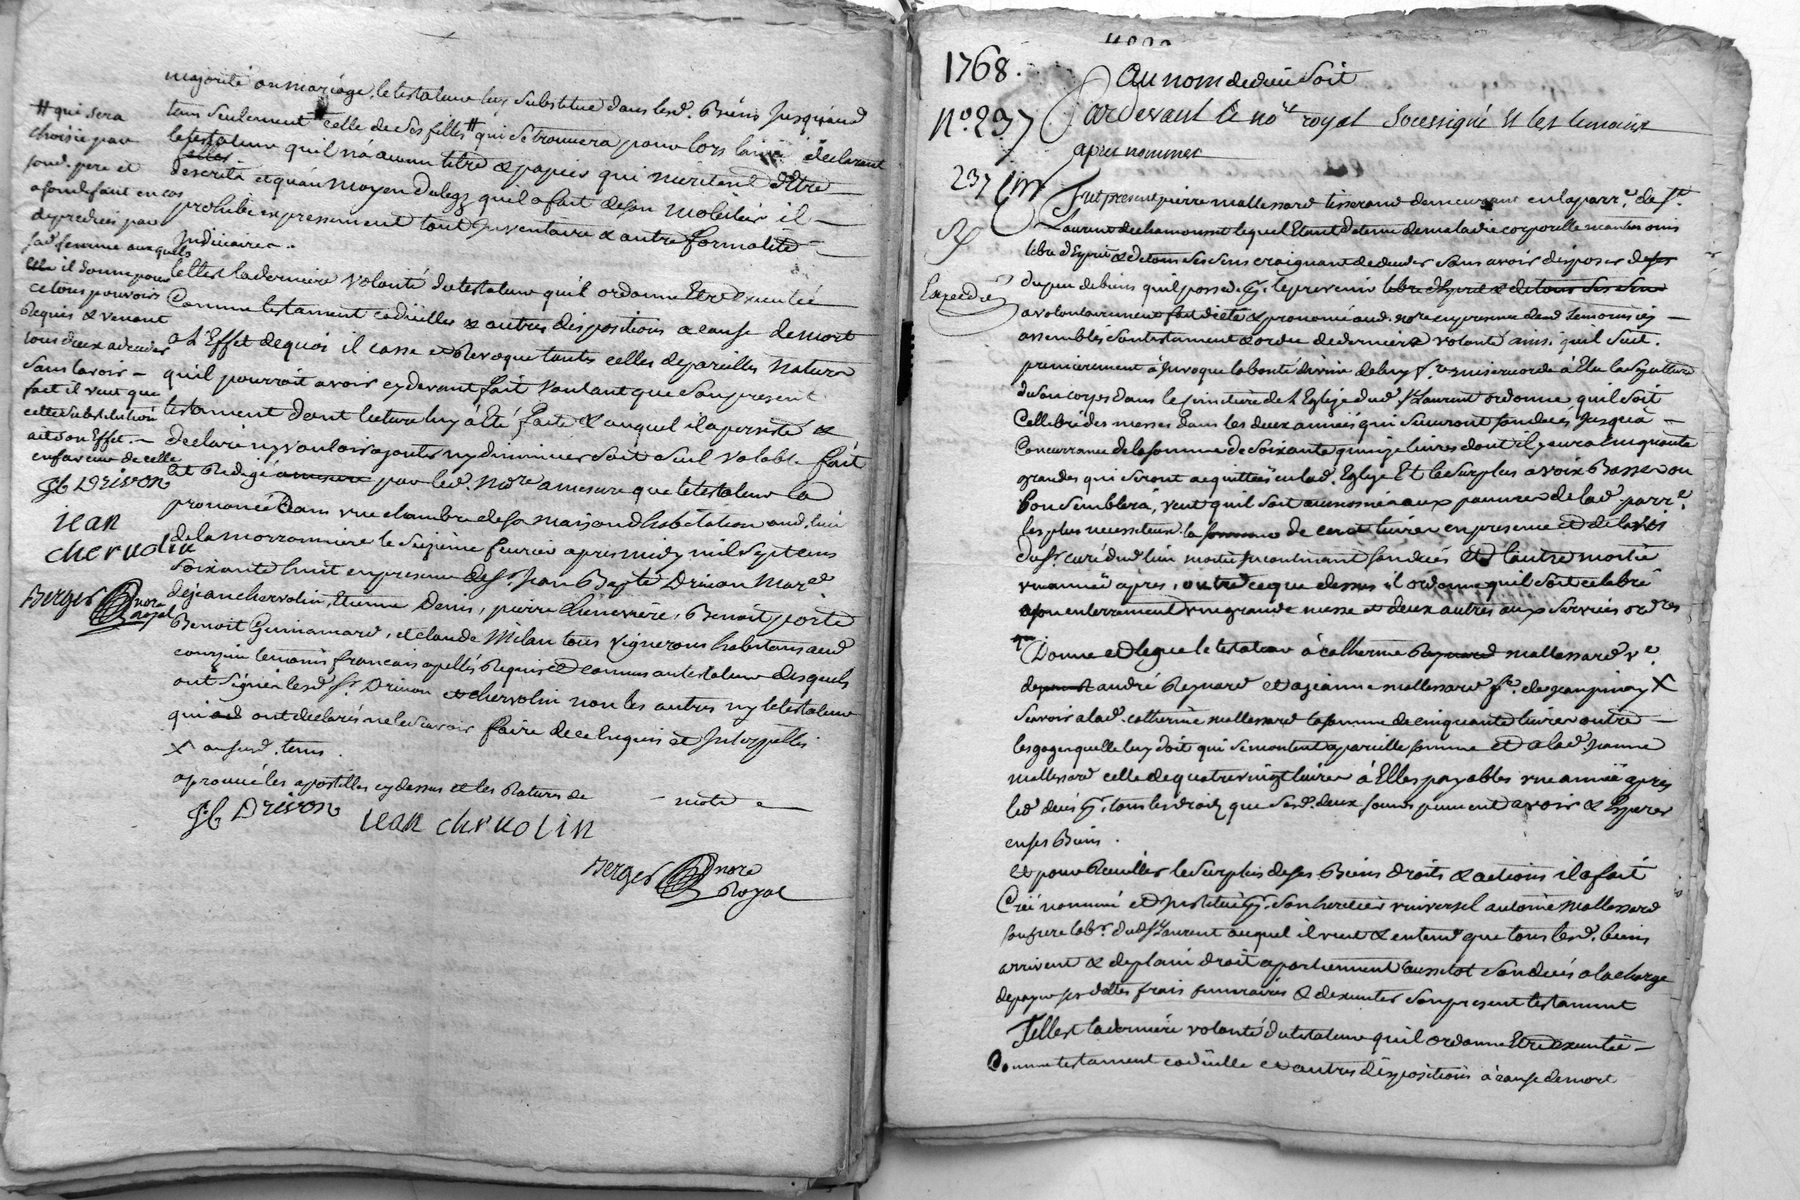 majorité ou mariage, le testateur luy substitue dans lesd. Biens jusqu'aud
tems seulement celle de ses filles # qui se trouvera pour lors laisnée déclarant
le testateur quil n'a aucun titre & papier qui meritent d'être
descrits et qu'au moyen du legz quil a fait de son mobilier il
prohibe expressement tout inventaire & autre formalité
judiciaire.
telle est la derniere volonté du testateur quil ordonne etre executée
Comme testament codicilles & autres dispositions a cause de mort
a L'Effet de quoi il casse et Revoque toutes celles de pareille Nature
quil pourroit avoir cy devant fait voulant que son present
testament dont lecture luy a été faite & auquel il a persisté &
declaré ny vouloir ajouter ny diminuer soit seul valabl. fait
et Redigé amesure par led. Nore amesure que le testateur la
prononcé Dans une chambre de sa maison d'habitation aud. lieu
de la morronniere le seizieme fevrier apres midy mil sept cens
soixante huit en presence de sr. Jean Bapte Drivon March.
de jean chervolin, Etienne Denis, pierre Chenevriere, Benoit porte
Benoit Guinamard, et claude Milan tous vignerons habitans aud
courzieu temoins francais apellés Requis et connus au testateur desquels
ont signé lesd. sr. Drivon et chervolin non les autres ny le testateur
qui ont declarés ne le scavoir faire de ce Requis et Interpellés
X ausurd. tems
aprouvé les apostilles cy dessus et les Ratures de mots
J B DRivon jean chervolin
Berger nore
Royal
# qui sera
choisie par
sond. pere et
a son defaut en cas
de predeces par
sad. femme auxquels
il donne pour
ce tous pouvoirs
Requis & venant
tous deux a deceder
sans lavoir
fait il veut que
cette substitution
ait son Effet
en faveur de celle
J B DRivon
jean
chervolin
Berger nore
Royal
1768.
No. 237
237
Expedié
Au nom de dieu soit
Pardevant le nore royal Soussigné Et les temoins
apres nommés
Fut present pierre mallessard tisserand demeurant en la parr.e de St.
Laurent de chamousset lequel Etant detenu de maladie corporelle neanmoins
libre d'Esprit & de tous ses sens craignant de deceder sans avoir disposer de ses
du peu de biens quil possede, pr. le prevenir libre d'Esprit & de tous ses sens
a volontairement fait dicté & prononcé aud. nore en presence desd. temoins icy
assemblés son testament & ordre de derniere volonté ainsi quil suit.
premierement a invoqué la bonté divine de luy fre misericorde à Elu la sepulture
du son corps dans le cimetiere de l'Eglize dud. St Laurent ordonne quil soit
Cellebré des messes dans les deux années qui suivront son deces jusqua
Concurrance de la somme de soixante quinze livres dont il y aura cinquante
grandes qui seront acquittées en lad. Eglize Et le surplus a voix Basse ou
bon semblera, veut quil soit aumosné aux pauvres de lad. parr.e
les plus necessiteux la somme de cent livres en presence et de l'avis
du sr. curé dud. lieu moitié incontinant son deces et l'autre moitié
une année apres, outre ce que dessus il ordonne quil soit celebré
a son enterrement une grande messe et deux autres aux services ordres
Donne et legue le testateur à catherine mallessard ve.
andré Reynard et a jeanne mallessard fe. de jean pinay X
Scavoir a lad. catherine mallessard la somme de cinquante livres outre
les gages quelle luy doit qui se montent a pareille somme et a lad. jeanne
mallessard celle de quatre vingt livres à Elles payables une année apres
led. deces pr. tous les droits que sesd. deux soeurs peuvent avoir & Esperer
en ses Biens.
et pour Recuillir le surplus de ses Biens droits & actions il a fait
Créé nommé et institué pr. son heretier universel antoine Mallessard
son frere labr. dud St Laurent auquel il veut & entend que tous lesd. biens
arrivent & de plain droit apartiennent aussitot son deces a la charge
de payer ses dettes frais funeraires & d'executer son present testament
Telle est la derniere volonté du testateur quil ordonne Etre executée
Comme testament codicille et autres dispositions à cause de mort